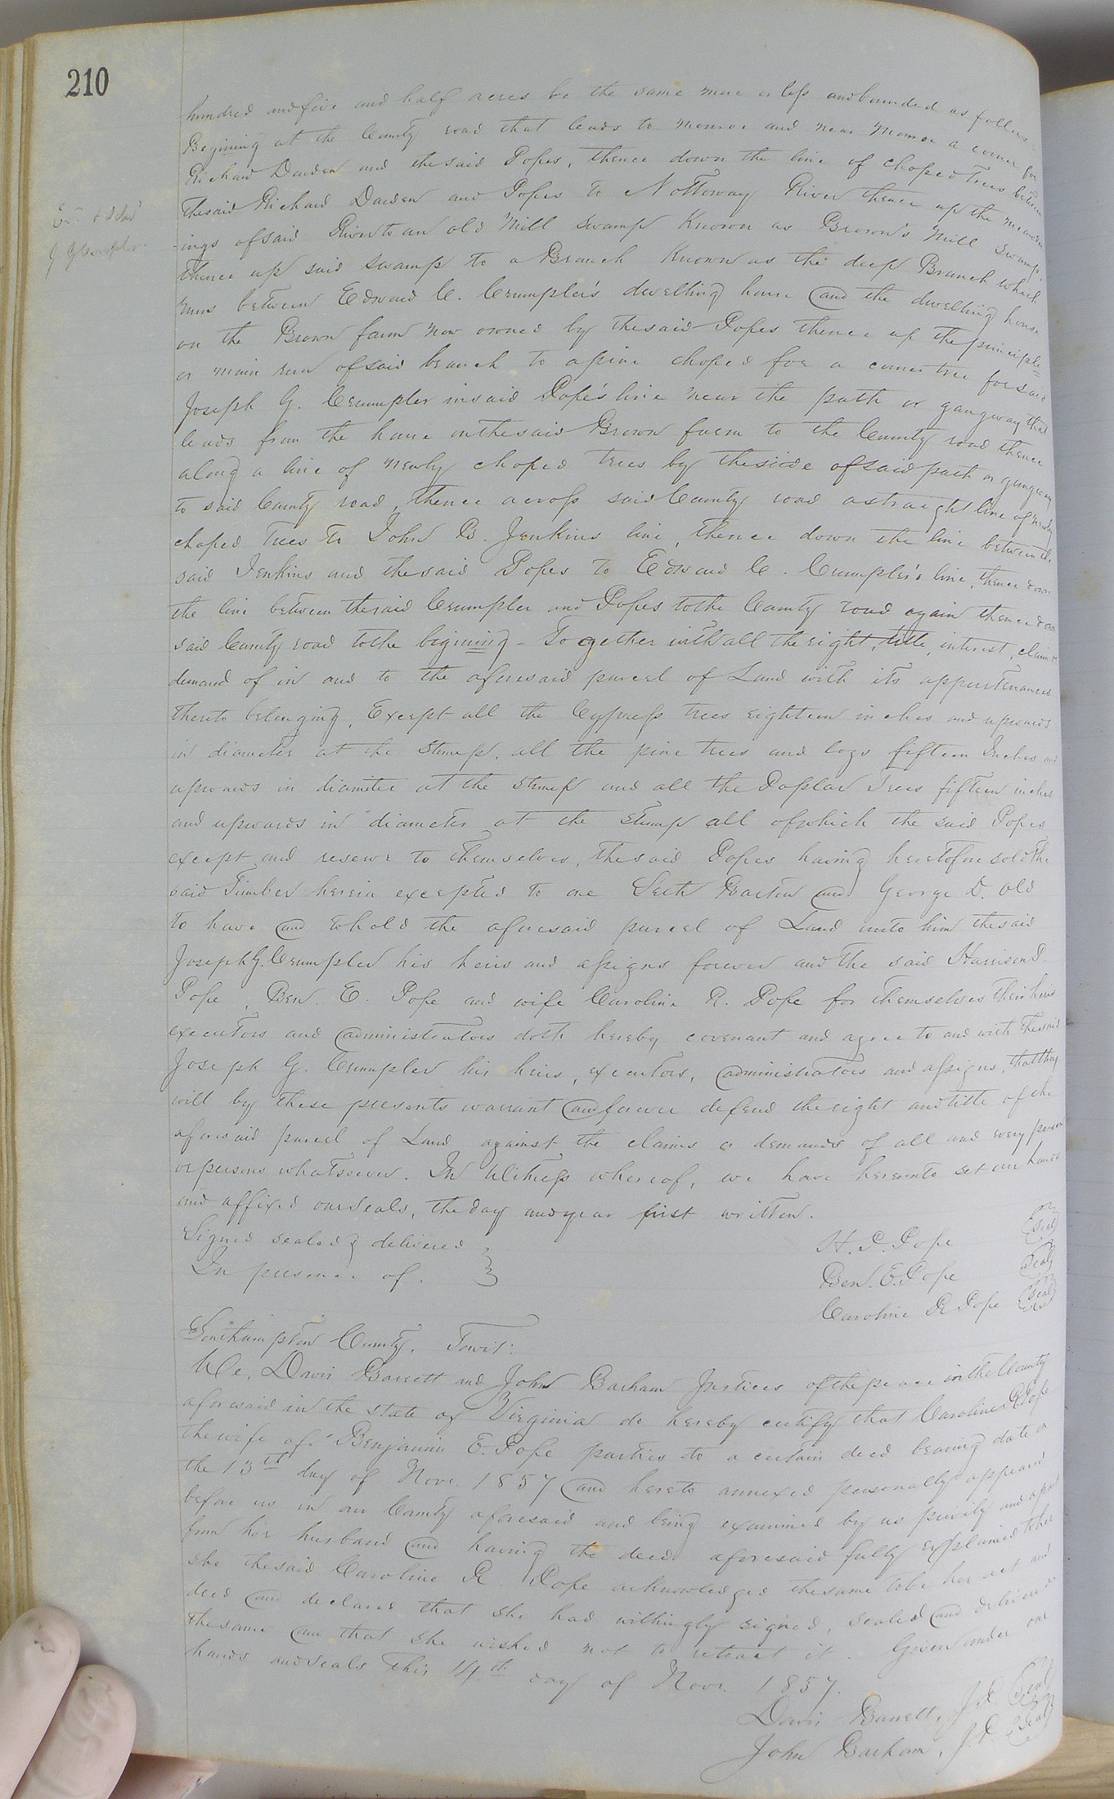 210
hundred and five and half acres be the same more or less and bounded as follows
Begining at the County road that leads to Monroe and near Monroe a corner for
Richard Darden and the said Popes, thence down the line of choped trees between
the said Richard Darden and Popes to Nottoway River thence up the meander
-ings of said River to an old Mill Swamp Known as Brown's Mill Swamp,
thence up said swamp to a Branch Known as the deep Branch which
runs between Edward C. Crumpler's dwelling house and the dwelling house
on the Brown farm now owned by the said Popes thence up the principle
or main run of said branch to a pine choped for a corner tree for said
Joseph G. Crumpler in said Pope's line near the path or gangway that
leads from the house on the said Brown farm to the County road thence
along a line of newly choped trees by the side of said path or gangway
to said County road, thence across said County road a straight line of newly
choped trees to John B. Jenkins line, thence down the line between the
said Jenkins and the said Popes to Edward C. Crumpler's line, thence down
the line between the said Crumpler and Popes to the County road again thence down
said County road to the begining - Together with all the right, title, interest, claim &
demand of in and to the aforesaid parcel of Land with its appurtenances
thereto belonging, Except all the Cypress trees eighteen inches and upwards
in diameter at the Stump, all the pine trees and logs fifteen Inches and
upwards in diameter at the Stump and all the Poplar Trees fifteen inches
and upwards in diameter at the Stump all of which the said Popes
except and reserve to themselves, the said Popes having heretofore sold the
said Timber herein excepted to one Seth Barton and George D. Old
to have and to hold the aforesaid parcel of Land unto him the said
Joseph G. Crumpler his heirs and assigns forever and the said Harrison P.
Pope, Ben. E. Pope and wife Caroline R. Pope for themselves their heirs
executors and administrators doth hereby covenant and agree to and with the said
Joseph G. Crumpler his heirs, executors, administrators and assigns, that they
will by these presents warrant and forever defend the right and title of the
aforesaid parcel of Land against the claims or demands of all and every person
or persons whatsoever. In Witness whereof, we have hereunto set our hands
and affixed our seals, the day and year first written.
Signed sealed & delivered
In presence of.
H. P. Pope (Seal)
Ben. E. Pope (Seal)
Caroline R Pope (Seal)
Southampton County, Towit:
We, Davis Barrett and John Barham Justices of the peace in the County
aforesaid in the state of Virginia do hereby certify that Caroline R Pope
the wife of Benjamin E. Pope parties to a certain deed bearing date on
the 13th day of Novr. 1857 and hereto annexed personally appeared
before us in our County aforesaid and being examined by us privily and apart
from her husband and having the deed aforesaid fully explained to her
she the said Caroline R. Pope acknowledged the same to be her act and
deed and declared that she had willingly signed, sealed and delivered
the same and that she wished not to retract it. Given under our
hands and seals this 14th day of Novr. 1857.
Davis Barrett, J.P. (Seal)
John Barham, J.P. (Seal)